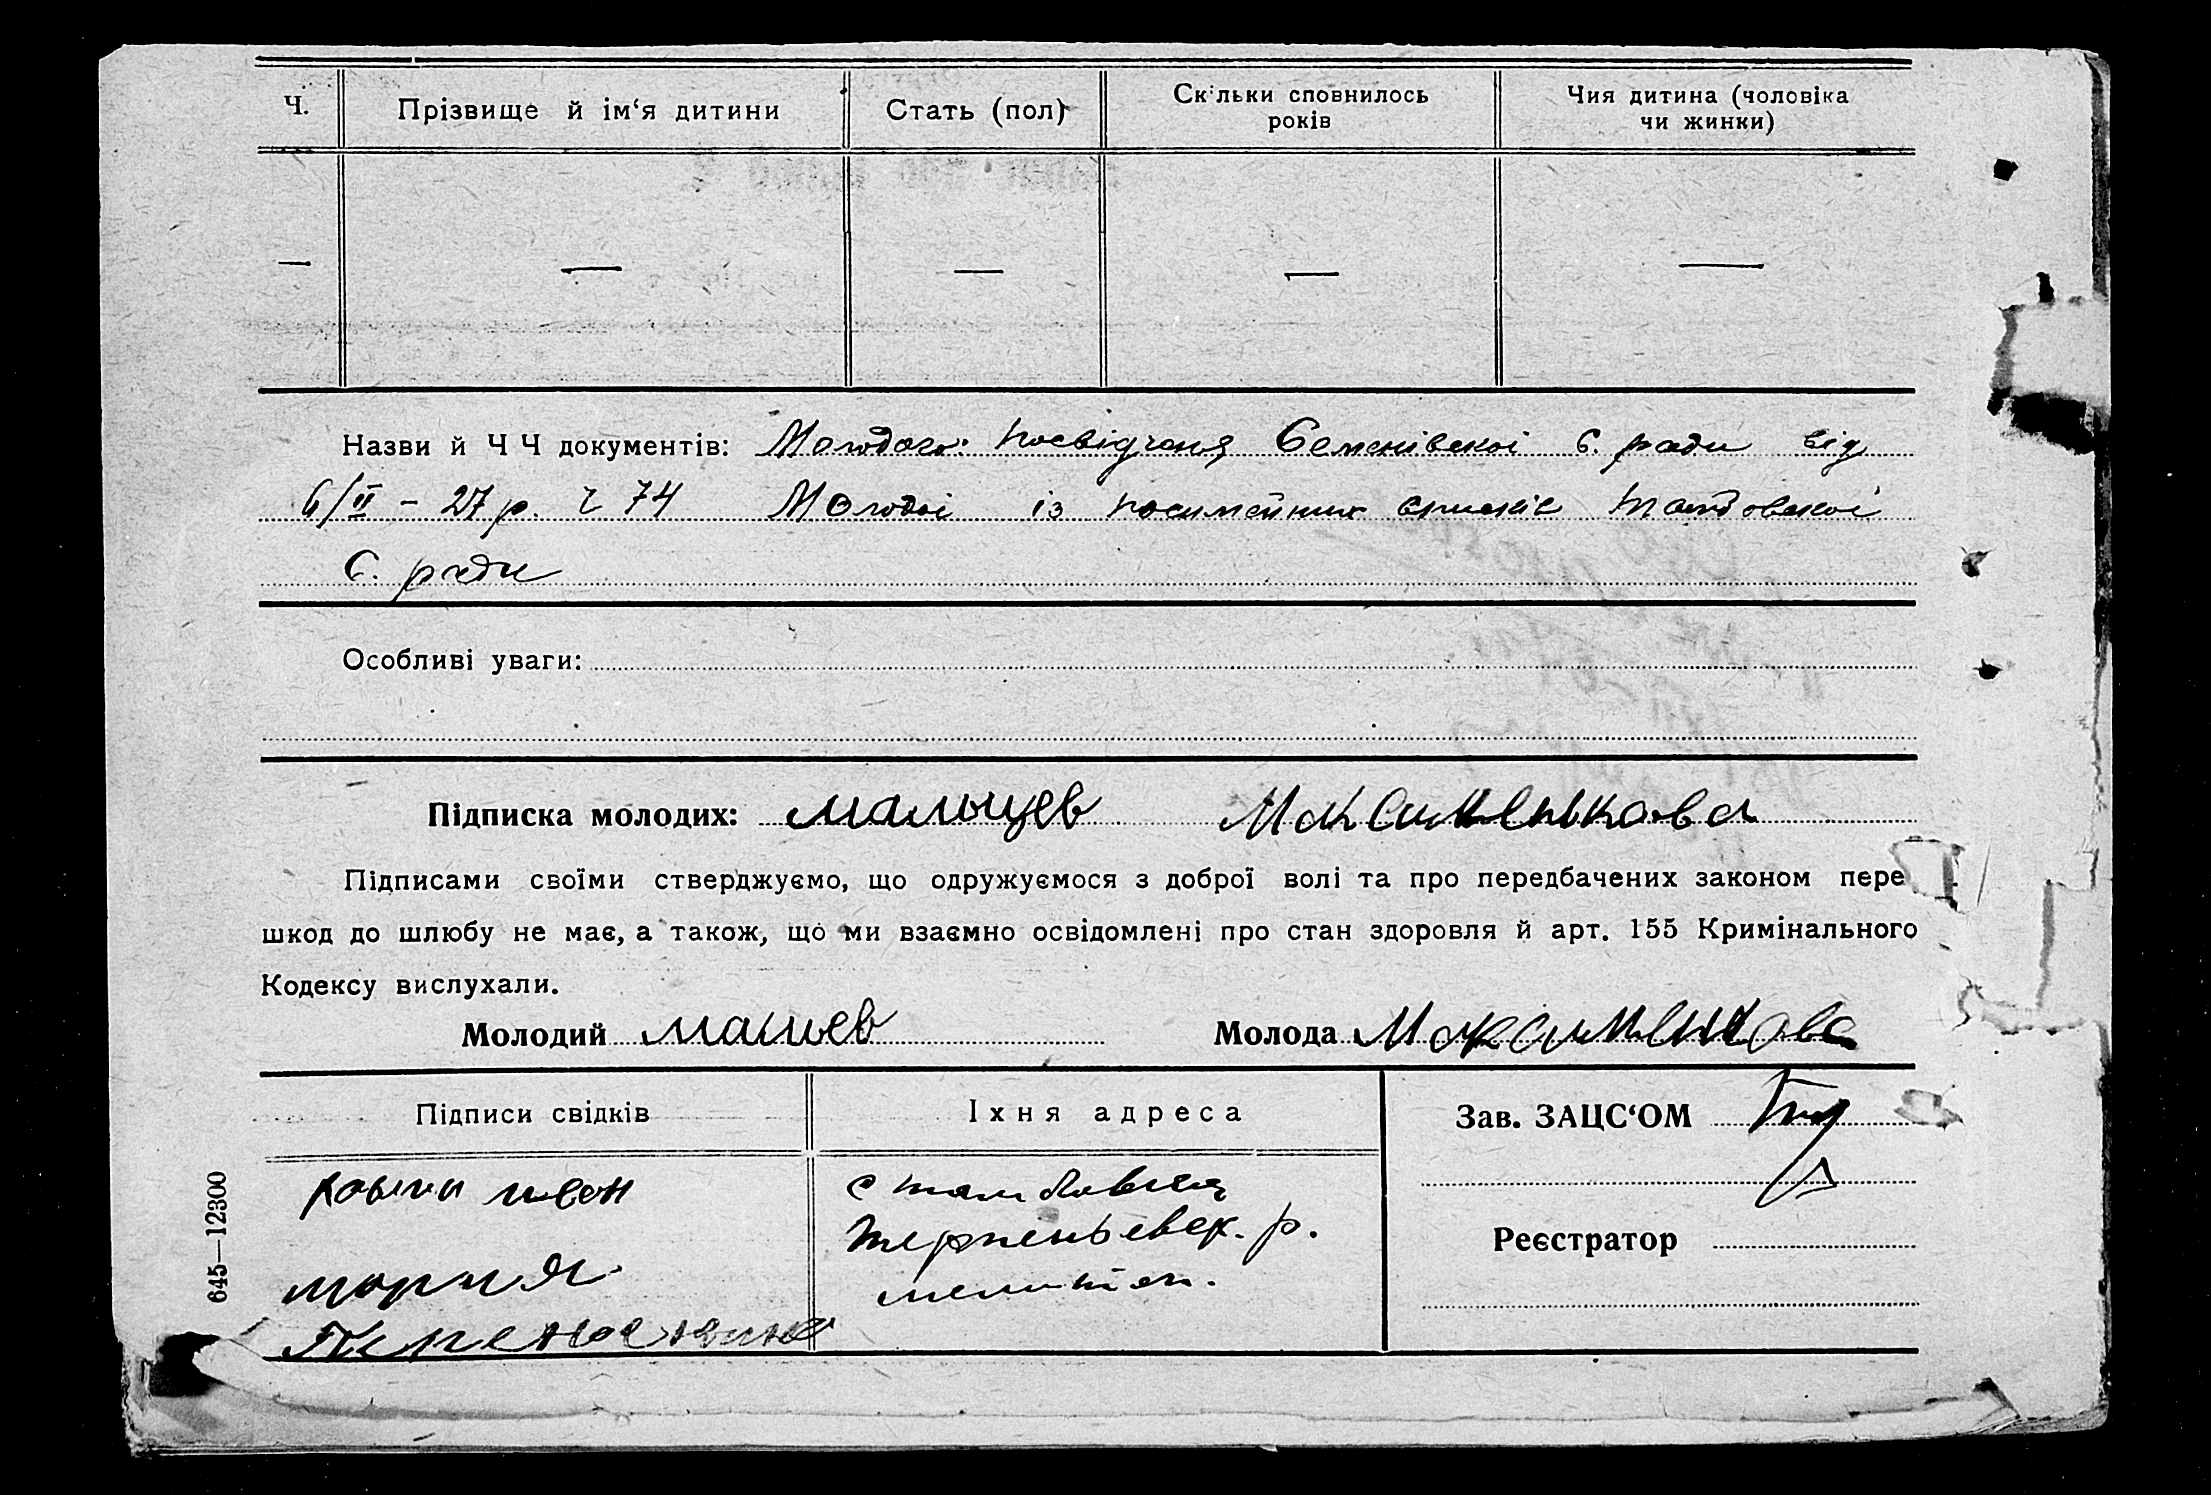 Ч. Прізвище й ім‘я дитини Стать (пол) Скільки сповнилось років Чия дитина (чоловіка чи жинки)
— — — — —
Назви й Ч Ч документів: Молодого: посвідченя Семенівскої с. ради від
6/II – 27 р. ч 74 Молодої із посимейних списків Тамбовскої
с. ради
Особливі уваги:
Підписка молодих: Мальцев Максименькова
Підписами своїми стверджуємо, що одружуємося з доброї волі та про передбачених законом пере
шкод до шлюбу не має, а також, що ми взаємно освідомлені про стан здоровля й арт. 155 Кримінального
Кодексу вислухали.
Молодий Мальцев Молода Максименкова
Підписи свідків Іхня адреса Зав. ЗАЦС‘ОМ
с Тамбовка
Терпеньевск. р.
Мелитоп.
Реєстратор
Мария
645—12300